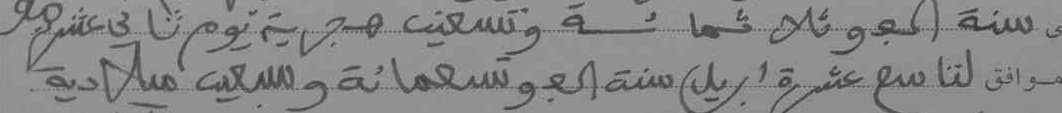 سنة الف وثلاثمائة وتسعين هجرية يوم ثاني عشر
موافق لتاسع عشرة ابريل سنة الف وتسعمائة وسبعين ميلادية